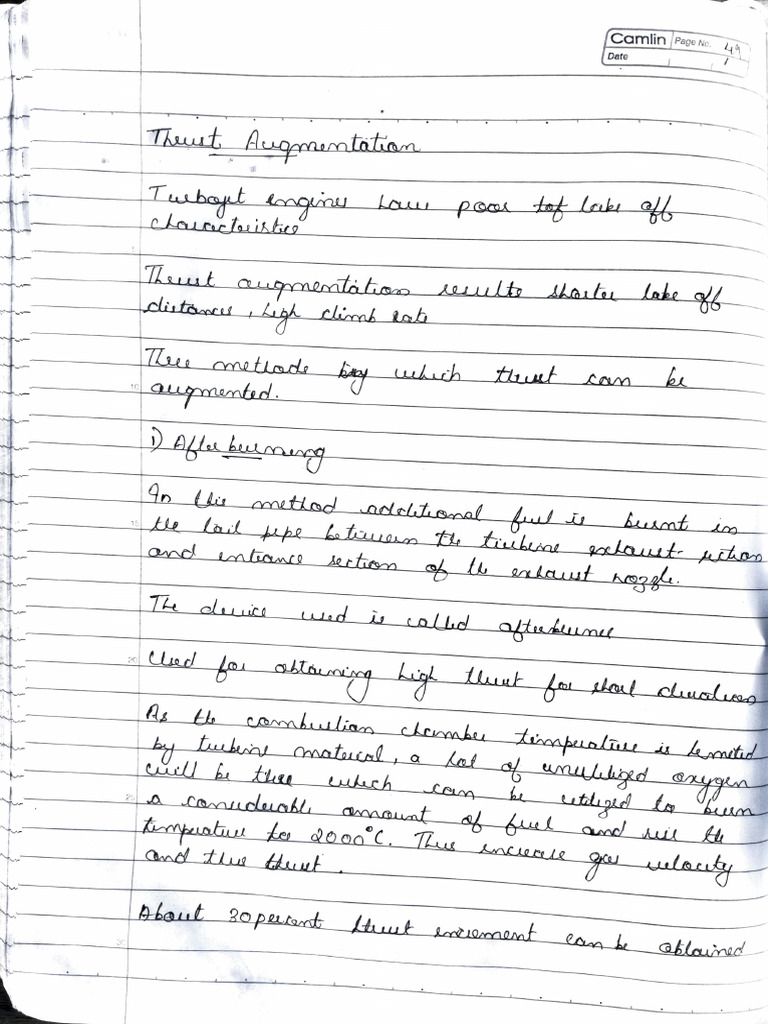 Camlin Page No. 49
Date
Thrust Augmentation
Turbojet engines have poor take off
characteristics
Thrust augmentation results shorter take off
distances, high climb rate
Three methods by which thrust can be
augmented.
1) After burning
In this method additional fuel is burnt in
the tail pipe between the turbine exhaust section
and entrance section of the exhaust nozzle.
The device used is called afterburner
Used for obtaining high thrust for short durations
As the combustion chamber temperature is limited
by turbine material, a lot of unutilized oxygen
will be there which can be utilized to burn
a considerable amount of fuel and rise the
temperature to 2000°C. This increase gas velocity
and thus thrust.
About 30 percent thrust increment can be obtained